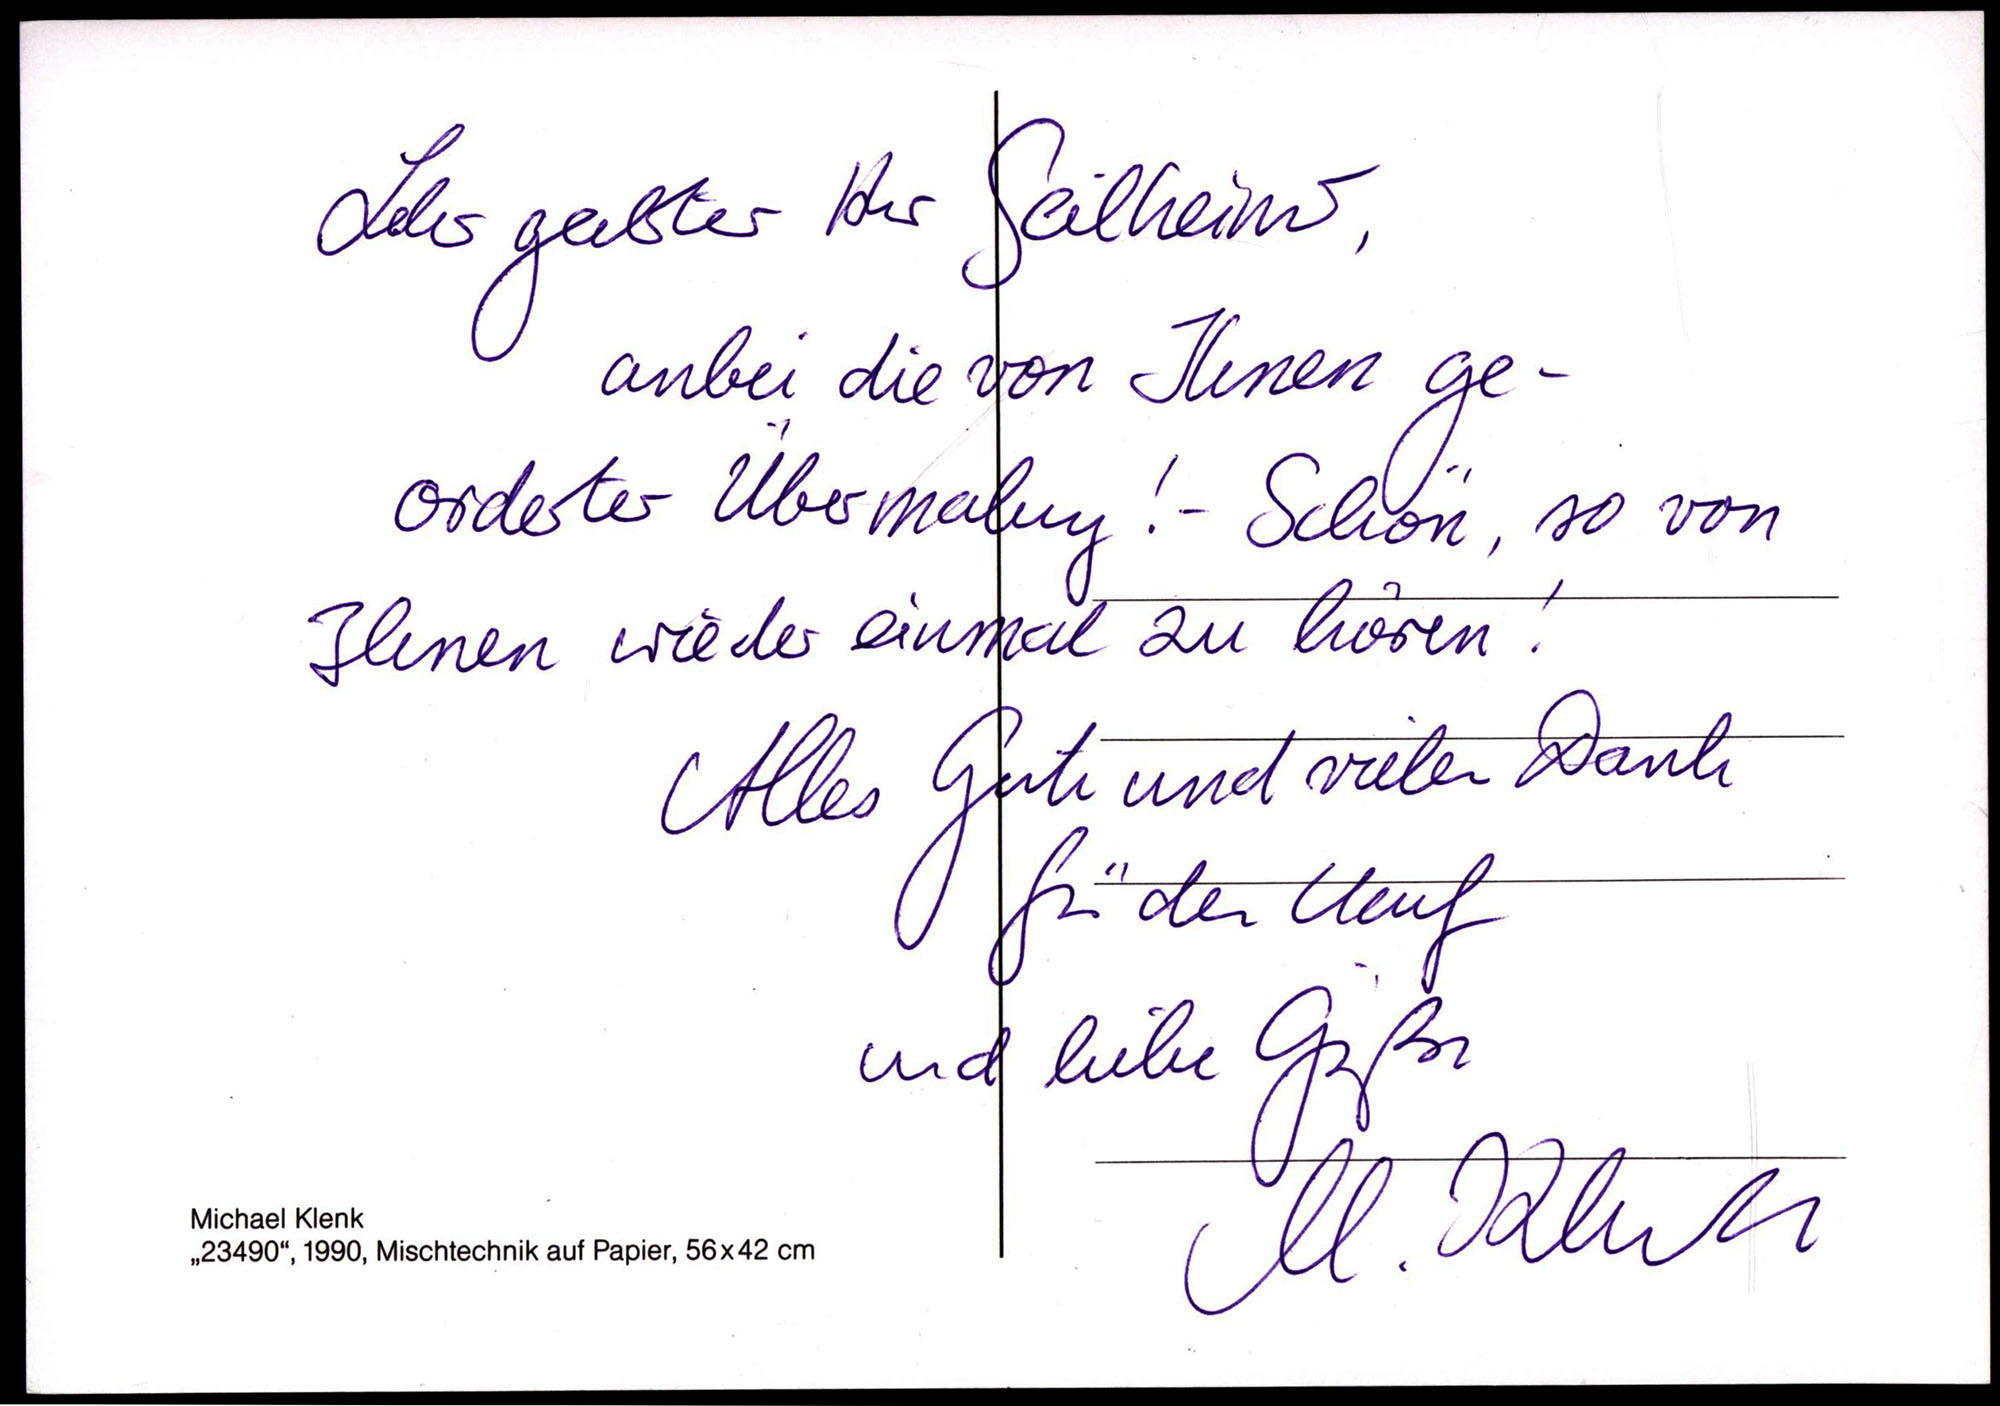 Sehr geehrter Herr Seilheimer,
anbei die von Ihnen ge-
orderter Übermalung! - Schön, so von
Ihnen wieder einmal zu hören!
Alles Gute und vielen Dank
für den Anruf
und liebe Grüße
M. Klenk
Michael Klenk
„23490“, 1990, Mischtechnik auf Papier, 56x42 cm